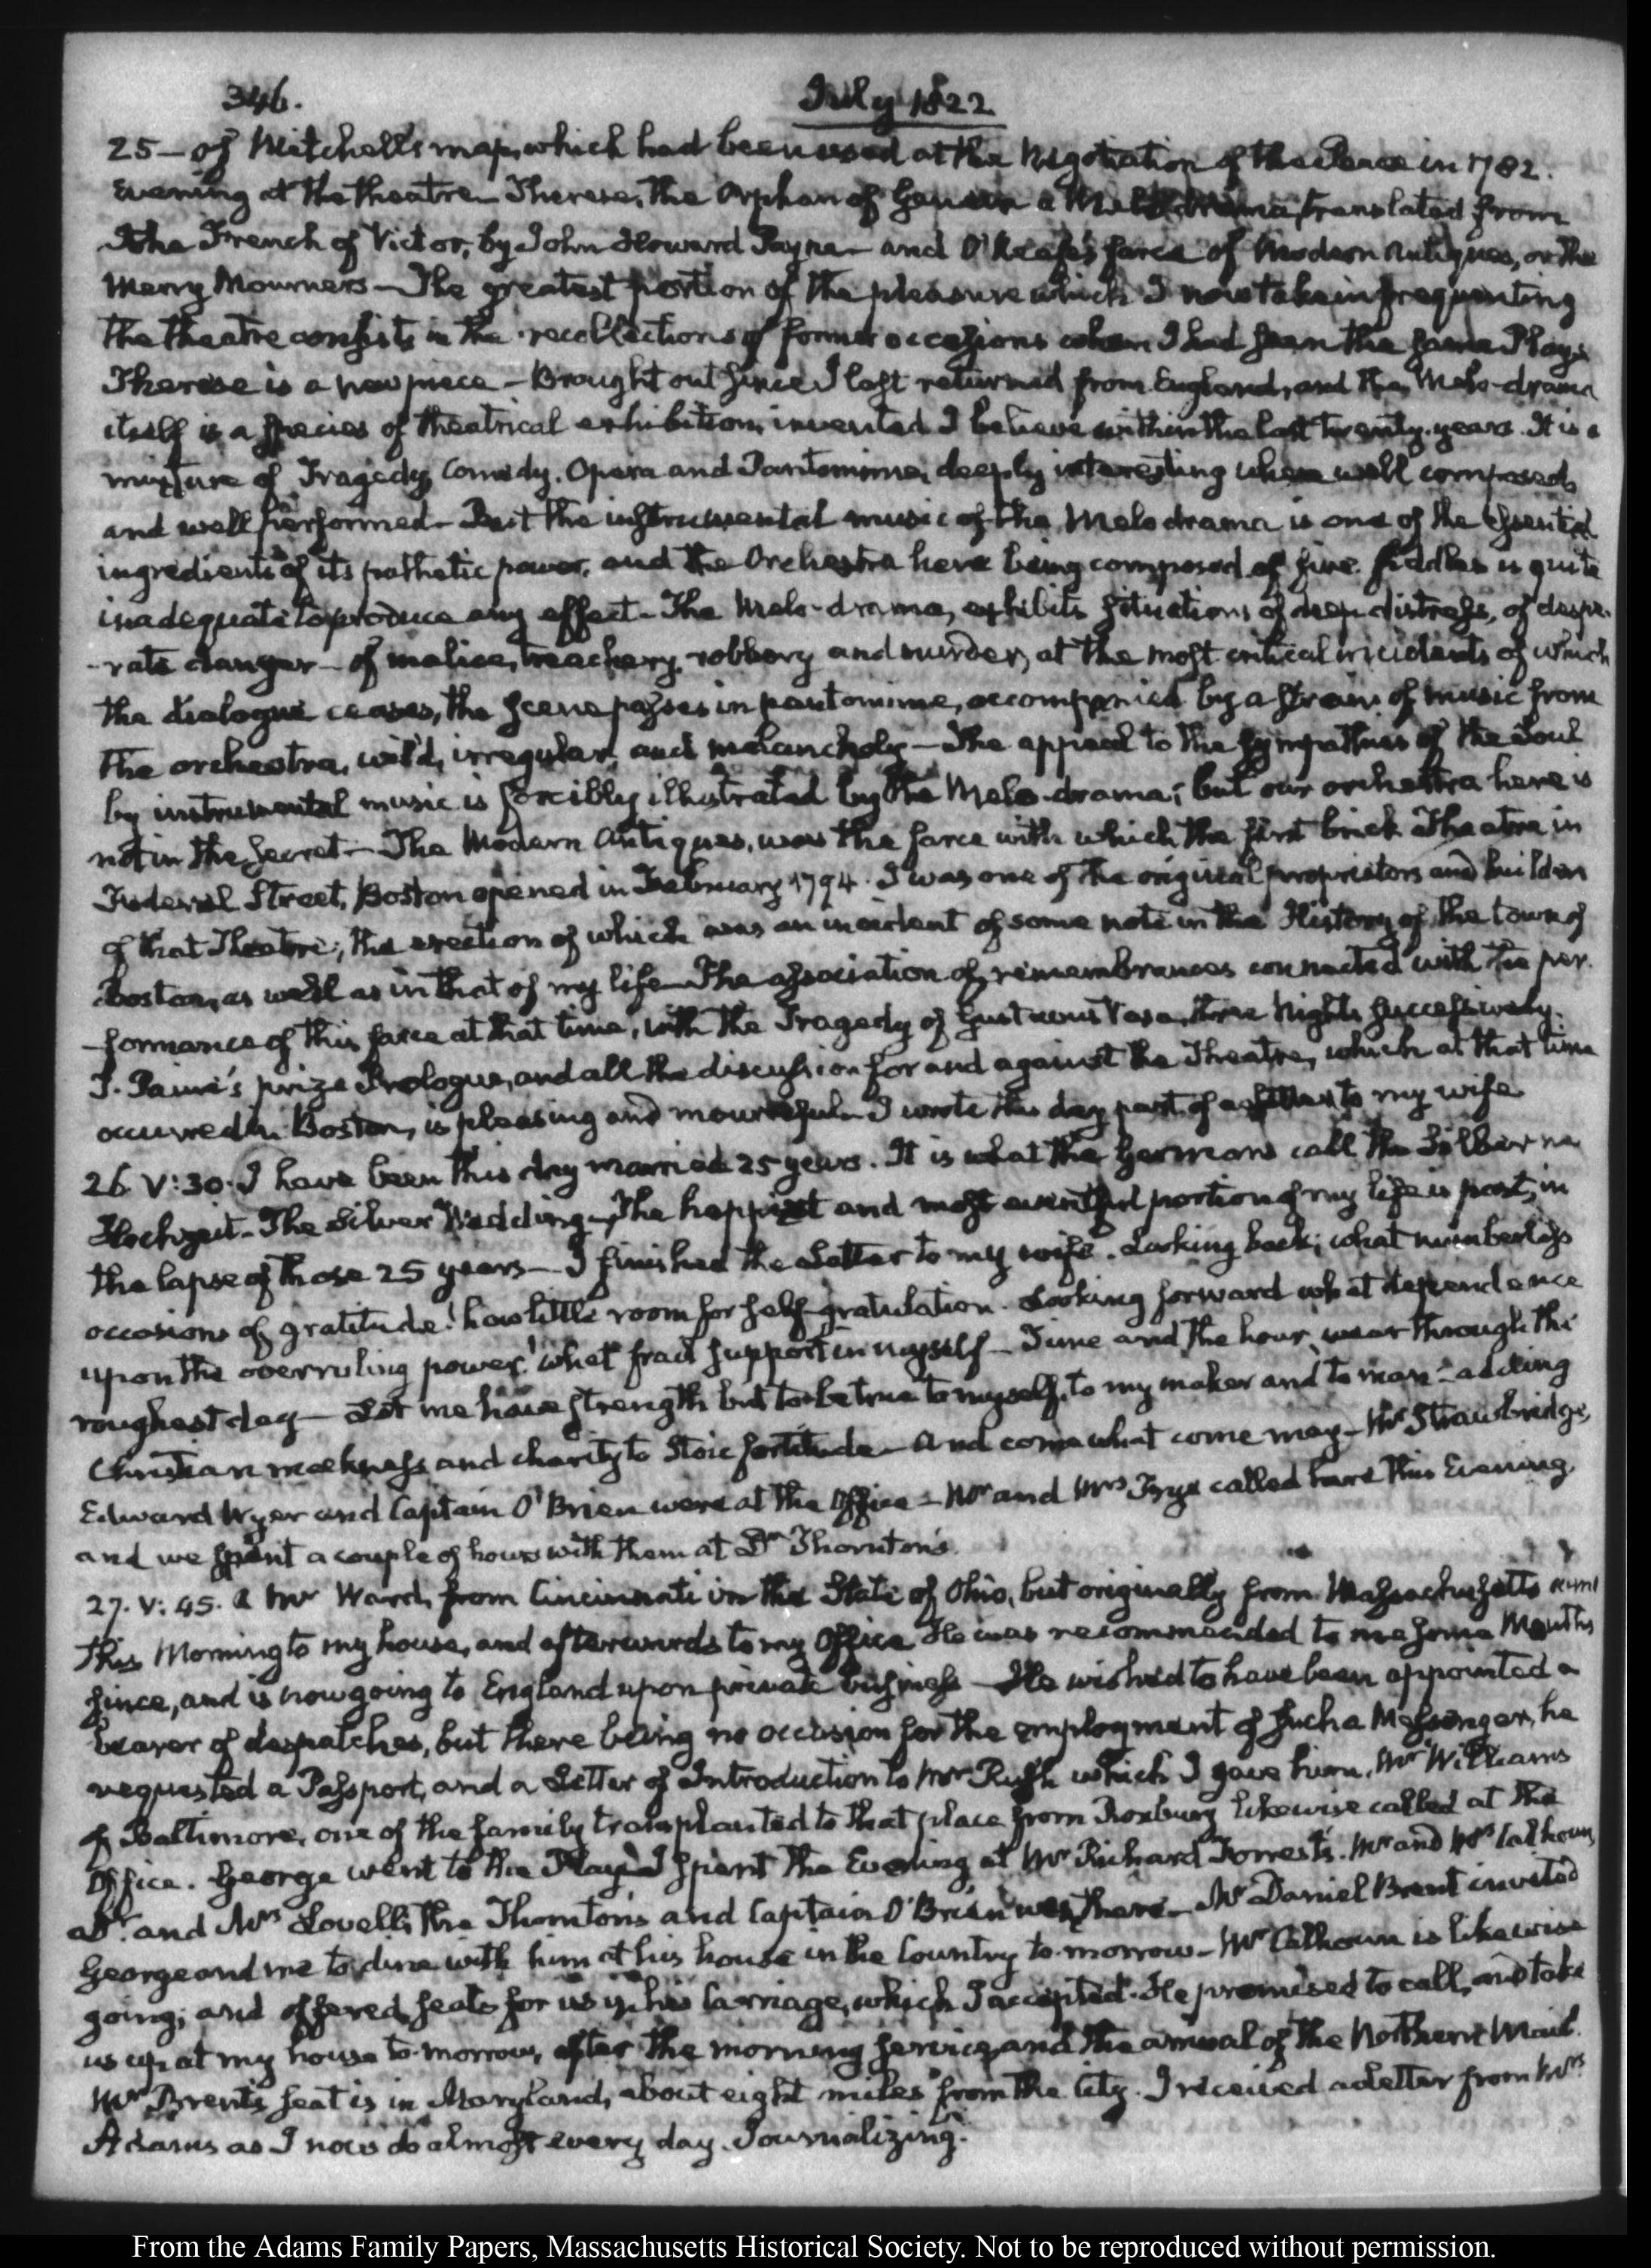 346.
July 1822
25 — of Mitchell's map, which had been used at the Negotiation of the Peace in 1782.
Evening at the theatre — Therese, the Orphan of Geneva a Melodrama, translated from
the French of Victor, by John Howard Payne — and O'Keefe's farce of Modern Antiques, or the
Merry Mourners — The greatest portion of the pleasure which I now take in frequenting
the theatre consists in the recollections of former occasions when I had seen the same Plays
Therese is a new piece — Brought out since I last returned from England, and the Melo-drama
itself is a species of theatrical exhibition, invented I believe within the last twenty years. It is a
mixture of Tragedy, Comedy, Opera and Pantomime, deeply interesting when well composed,
and well performed — But the instrumental music of the Melo drama is one of the essential
ingredients of its pathetic power, and the Orchestra here being composed of five fiddles is quite
inadequate to produce any effect — The Melo-drama, exhibits situations of deep distress, of despe-
-rate danger — of malice, treachery, robbery and murder, at the most critical incidents of which
the dialogue ceases, the scene passes in pantomime, accompanied by a strain of music from
the orchestra, wild, irregular, and melancholy — The appeal to the sympathies of the Soul
by instrumental music is forcibly illustrated by the Melo-drama; but our orchestra here is
not in the secret — The Modern Antiques, was the farce with which the first brick Theatre in
Federal Street, Boston opened in February 1794. I was one of the original proprietors and builders
of that Theatre; the erection of which was an incident of some note in the History of the town of
Boston, as well as in that of my life — The association of remembrances connected with the per-
-formance of this farce at that time, with the Tragedy of Gustavus Vasa, three Nights successively.
T. Paine's prize Prologue, and all the discussion for and against the Theatre, which at that time
occurred in Boston, is pleasing and mournful — I wrote this day part of a letter to my wife
26. V:30. I have been this day married 25 years. It is what the Germans call the Silberne
Hochzeit — The Silver Wedding — The happiest and most eventful portion of my life is past, in
the lapse of those 25 years — I finished the Letter to my wife. Looking back; what numberless
occasions of gratitude! how little room for self-gratulation. Looking forward what dependence
upon the overruling power! what frail support in myself — Time and the hour, wear through the
roughest day — Let me have strength but to be true to myself, to my maker and to man — adding
Christian meekness and charity to Stoic fortitude — And come what come may — Mr Strawbridge,
Edward Wyer and Captain O'Brien were at the Office — Mr and Mrs Frye called here this Evening,
and we spent a couple of hours with them at Dr Thornton's.
27. V:45. A Mr Ward, from Cincinnati in the State of Ohio, but originally from Massachusetts came
this Morning to my house, and afterwards to my Office. He was recommended to me some Months
since, and is now going to England upon private business — He wished to have been appointed a
bearer of despatches, but there being no occasion for the employment of such a Messenger, he
requested a Passport, and a Letter of Introduction to Mr Rush which I gave him. Mr Williams
of Baltimore, one of the family transplanted to that place from Roxbury likewise called at the
Office. George went to the Play. I spent the Evening at Mr Richard Forrest's. Mr and Mrs Calhoun,
Dr. and Mrs Lovell, the Thornton's and Captain O'Brien were there — Mr Daniel Brent invited
George and me to dine with him at his house in the Country to-morrow — Mr Calhoun is likewise
going; and offered seats for us in his Carriage, which I accepted. He promised to call, and take
us up at my house to-morrow, after the morning service, and the arrival of the Northern Mail.
Mr Brent's seat is in Maryland, about eight miles from the City. I received a Letter from Mrs
Adams as I now do almost every day. Journalizing.
From the Adams Family Papers, Massachusetts Historical Society. Not to be reproduced without permission.